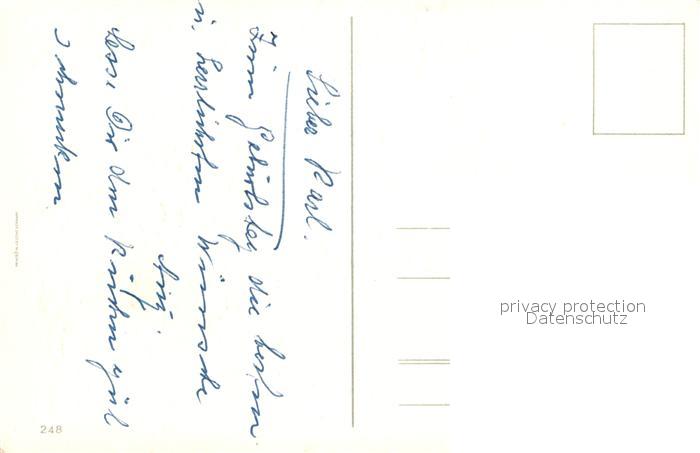 Lieber Karl.
Zum Geburtstag die besten
u. herzlichsten Wünsche
Lass Dir den Kuchen gut
schmecken
248
privacy protection
Datenschutz